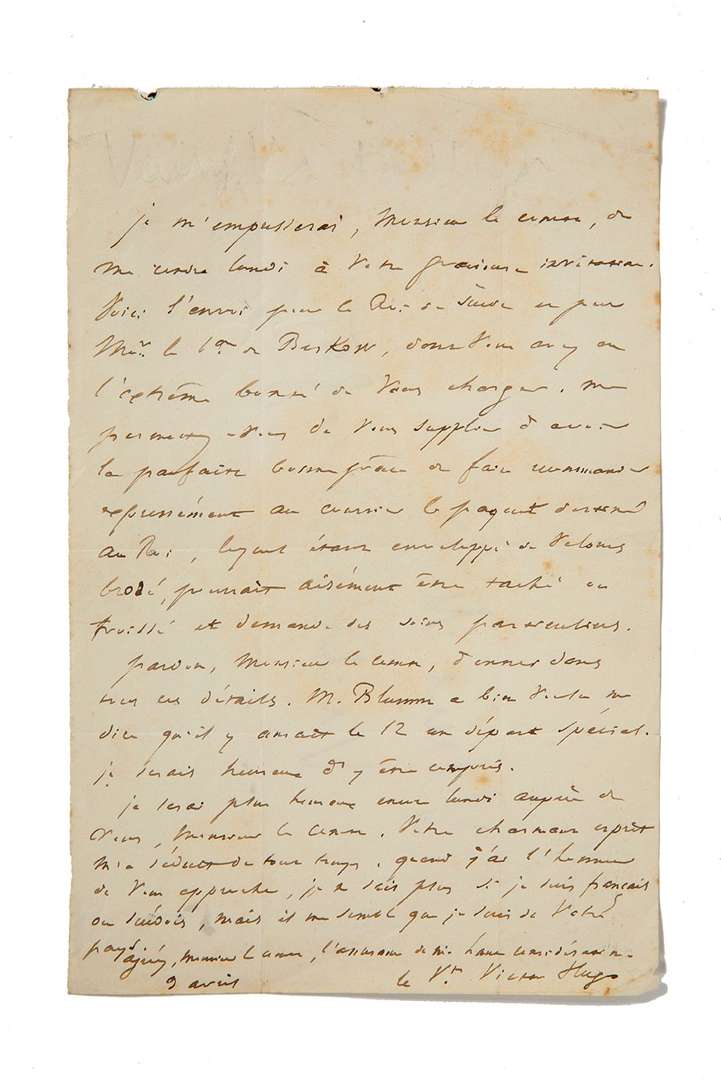 je m'empresserai, Monsieur le comte, de
me rendre lundi à votre gracieuse invitation.
Voici l'envoi pour le Roi de Suède et pour
Mr. le Bon de Beskow, dont vous avez eu
l'extrême bonté de vous charger. me
permettez-vous de vous supplier d'avoir
la parfaite bonne grâce de faire recommander
expressément au courrier le paquet destiné
au Roi, lequel étant enveloppé de velours
brodé, pourrait aisément être taché ou
froissé et demande des soins particuliers.
pardon, Monsieur le comte, d'entrer dans
tous ces détails. M. Blumm a bien voulu me
dire qu'il y aurait le 12 un départ spécial.
je serais heureux d'y être compris.
je serai plus heureux encore lundi auprès de
vous, Monsieur le comte. Votre charmant esprit
m'a séduit de tout temps. quand j'ai l'honneur
de vous approcher, je ne sais plus si je suis français
ou suédois, mais il me semble que je suis de votre
pays. agréez, Monsieur le comte, l'assurance de ma haute considération.
9 avril le Vte Victor Hugo